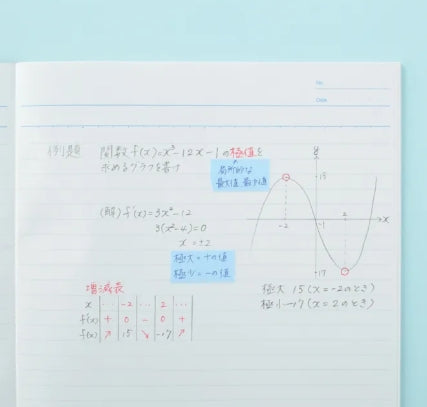 No.
Date
例題 関数 f(x)=x³-12x-1の極値を
求めるグラフを書け
局所的な
最大値、最小値
(解) f'(x)=3x²-12
3(x²-4)=0
x=±2
極大=+の値
極小=-の値
y
15
-2
-1
2
x
-17
極大 15 (x=-2のとき)
極小-17 (x=2のとき)
増減表
x … -2 … 2 …
f'(x) + 0 - 0 +
f(x) ↗ 15 ↘ -17 ↗